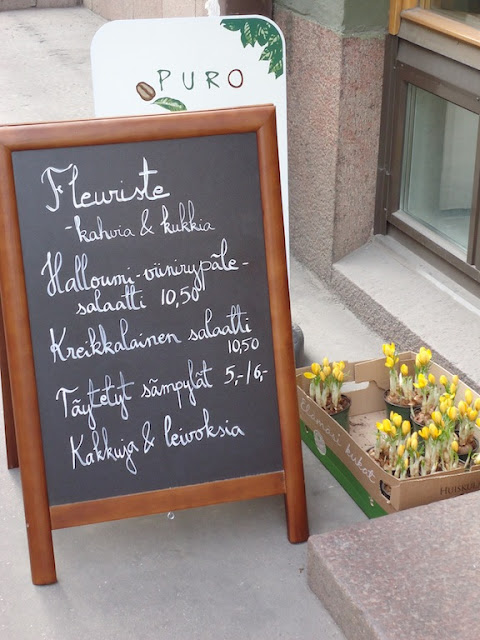 PURO
Fleuriste
-kahvia & kukkia
Halloumi-viinirypäle-
salaatti 10,50
Kreikkalainen salaatti
10,50
Täytetyt sämpylät 5,-/6,-
Kakkuja & leivoksia